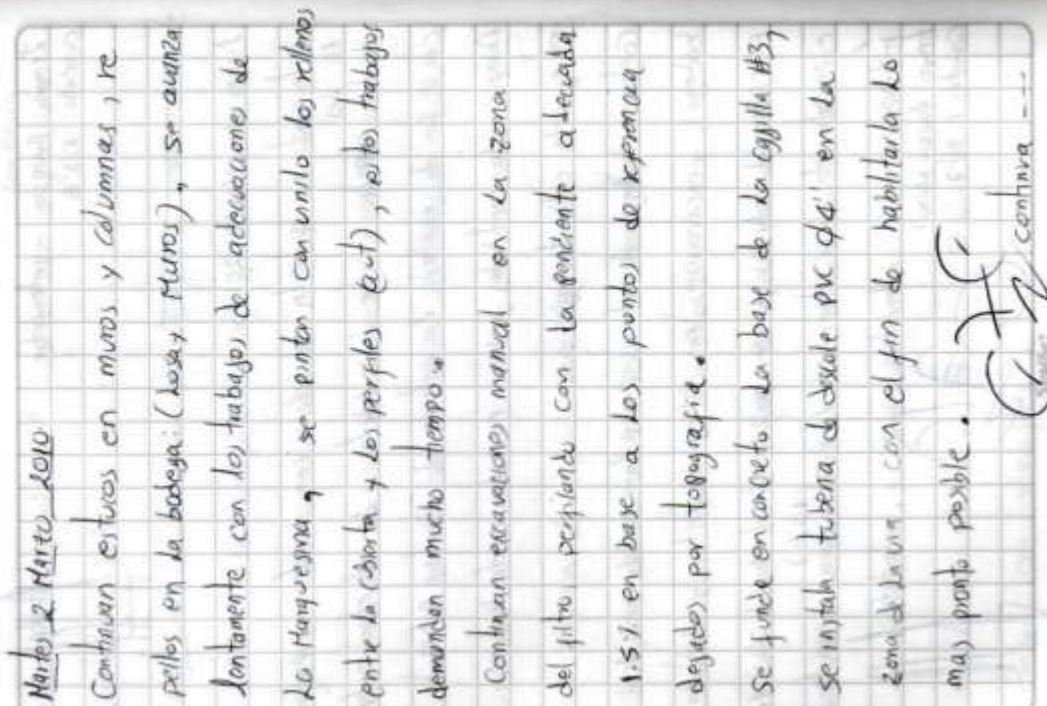 Martes 2 Marzo 2010
Continuan estucos en muros y columnas, re
pellos en la bodega (Losa y Muros), se avanza
lentamente con los trabajos de adecuaciones de
La Marquesina, se pintan con vinilo los rellenos
entre la cubierta y los perfiles (aut), estos trabajos
demandan mucho tiempo.
Continuan excavaciones manual en la zona
del filtro perfilando con la pendiente adecuada
1.5% en base a los puntos de referencia
dejados por topografia.
Se funde en concreto la base de la cajilla #3,
se instala tuberia de descole pvc Ø4" en la
zona de la via con el fin de habilitarla lo
mas pronto posible.
continua ---